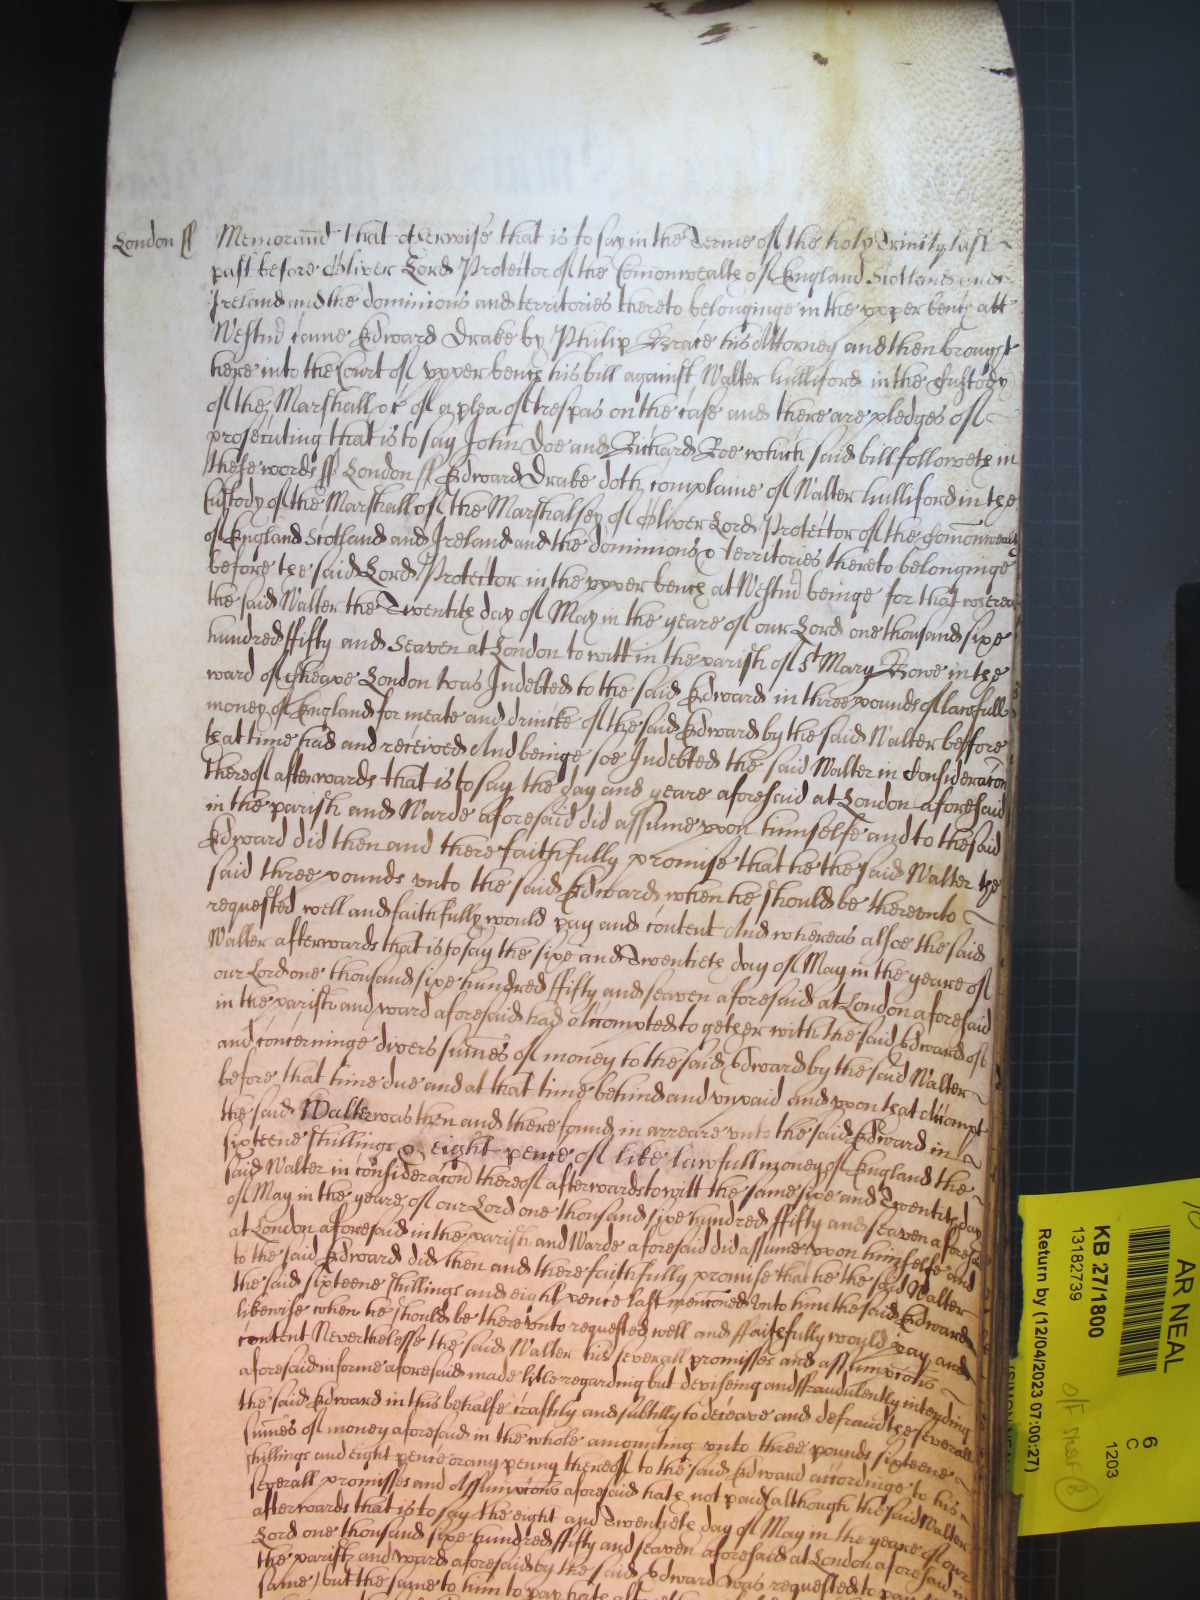 London ss Memorand that otherwise that is to say in the Terme of the holy Trinity last
past before Oliver Lord Protector of the Comonwealth of England Scotland and
Ireland and the dominions and territories thereto belonginge in the upper bench att
Westm came Edward Drake by Philip Grace his Attorney and then brought
here into the Court of upper bench his bill against Walter hulliford in the Custody
of the Marshall &c of a plea of trespas on the case and there are pledges of
prosecuting that is to say John Doe and Richard Roe which said bill followeth in
these words ss London ss Edward Drake doth complaine of Walter hulliford in the
Custody of the Marshall of the Marshalsey of Oliver Lord Protector of the Comonwealth
of England Scotland and Ireland and the dominions & territories thereto belonginge
before the said Lord Protector in the upper bench at Westm beinge for that whereas
the said Walter the Twentith day of May in the yeare of our Lord one thousand sixe
hundred ffifty and Seaven at London to witt in the parish of St Mary Bowe in the
ward of Cheape London was Indebted to the said Edward in three pounds of lawfull
money of England for meate and drincke of the said Edward by the said Walter beffore
that time had and received And beinge soe Indebted the said Walter in Consideracon
thereof afterwards that is to say the day and yeare aforesaid at London aforesaid
in the parish and Warde aforesaid did assume upon himselfe and to the said
Edward did then and there faithfully promise that he the said Walter the
said three pounds unto the said Edward when he should be thereunto
requested well and faithfully would pay and content And whereas alsoe the said
Walter afterwards that is to say the sixe and Twentieth day of May in the yeare of
our Lord one thousand sixe hundred ffifty and seaven aforesaid at London aforesaid
in the parish and ward aforesaid had accompted together with the said Edward of
and concerninge divers sumes of money to the said Edward by the said Walter
before that time due and at that time behind and unpaid and upon that accompt
the said Walter was then and there found in arreare unto the said Edward in
sixteene shillings & eight pence of like lawfull money of England the
said Walter in consideracon thereof afterwards to witt the same sixe and Twentith day
of May in the yeare of our Lord one thousand sixe hundred ffifty and seaven aforesd
at London aforesaid in the parish and Warde aforesaid did assume upon himselfe and
to the said Edward did then and there faithfully promise that he the said Walter
the said sixteene shillings and eight pence last menconed unto him the said Edward
likewise when he should be thereunto requested well and ffaithfully would pay and
content Neverthelesse the said Walter his severall promisses and assumpcions
aforesaid in forme aforesaid made litle regarding but deviseing and ffraudulently intending
the said Edward in this behalfe craftily and subtilly to deceave and defraud the severall
sumes of money aforesaid in the whole amounting unto three pounds sixteene
shillings and eight pence or any penny thereof to the said Edward accordinge to his
severall promisses and Assumpcions aforesaid hath not paid (although the said Walter
afterwards that is to say the eight and Twentieth day of May in the yeare of our
Lord one thousand sixe hundred ffifty and seaven aforesaid at London aforesaid in
the parish and ward aforesaid by the said Edward was requested to pay the
same) but the same to him to pay hath
AR NEAL
6
C
1203
KB 27/1800
13182739
Return by (12/04/2023 07:00:27)